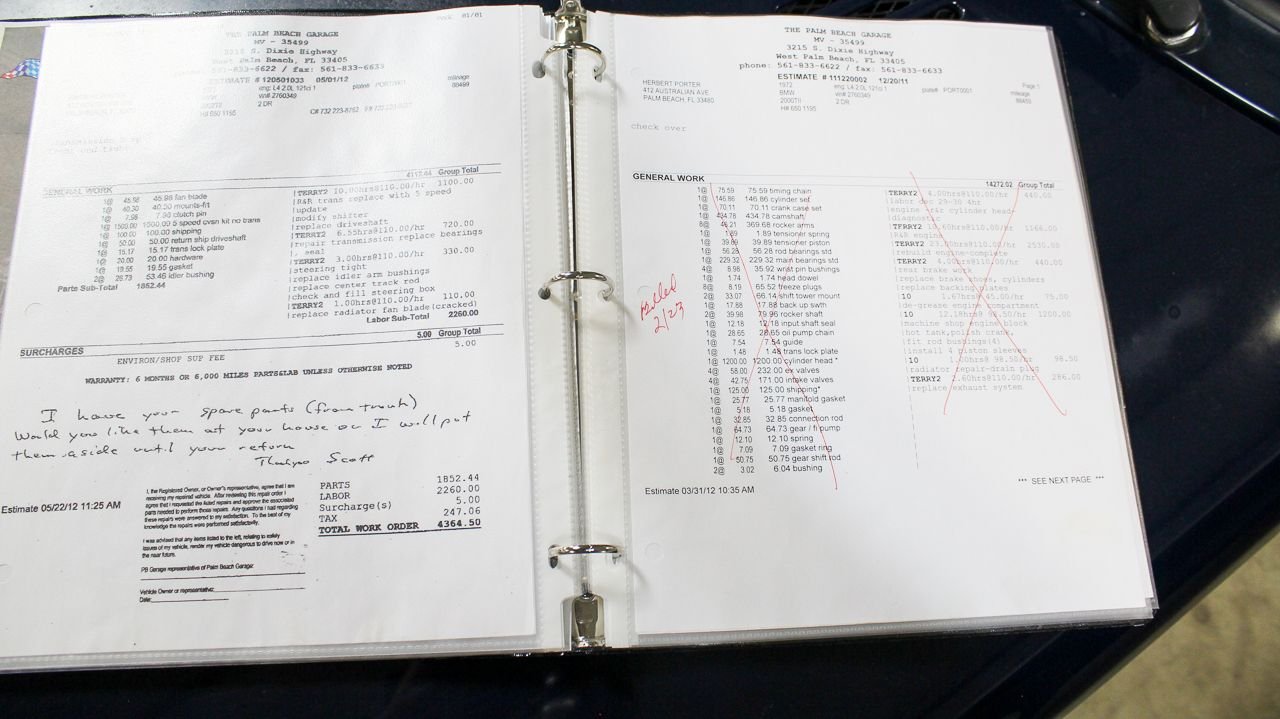 01/01
THE PALM BEACH GARAGE
MV - 35499
3215 S. Dixie Highway
West Palm Beach, FL 33405
phone: 561-833-6622 / fax: 561-833-6633
ESTIMATE # 120501033 05/01/12
eng: L4 2.0L 121ci 1 plate# PORTK001 mileage
vin# 2760349 88499
2000TII 2 DR
H# 650 1195
4112.44 Group Total
GENERAL WORK
1@ 45.98 45.98 fan blade
1@ 40.30 40.30 mounts-frt
1@ 7.98 7.98 clutch pin
1@ 1500.00 1500.00 5 speed cvsn kit no trans
1@ 100.00 100.00 shipping
1@ 50.00 50.00 return ship driveshaft
1@ 15.17 15.17 trans lock plate
1@ 20.00 20.00 hardware
1@ 19.55 19.55 gasket
2@ 26.73 53.46 idler bushing
Parts Sub-Total 1852.44
|TERRY2 10.00hrs@110.00/hr 1100.00
|R&R trans replace with 5 speed
|update
|modify shifter
|replace driveshaft
|TERRY2 6.55hrs@110.00/hr 720.00
|repair transmission replace bearings
|, seal
|TERRY2 3.00hrs@110.00/hr 330.00
|steering tight
|replace idler arm bushings
|replace center track rod
|check and fill steering box
|TERRY2 1.00hrs@110.00/hr 110.00
|replace radiator fan blade(cracked)
Labor Sub-Total 2260.00
5.00 Group Total
SURCHARGES
ENVIRON/SHOP SUP FEE 5.00
WARRANTY: 6 MONTHS OR 6,000 MILES PARTS&LAB UNLESS OTHERWISE NOTED
I have your spare parts (from trunk)
Would you like them at your house or I will put
them aside until your return
Scott
Estimate 05/22/12 11:25 AM
I, the Registered Owner, or Owner's representative, agree that I am
receiving my repaired vehicle. After reviewing this repair order I
agree that I requested the listed repairs and approve the associated
parts needed to perform those repairs. Any questions I had regarding
these repairs were answered to my satisfaction. To the best of my
knowledge the repairs were performed satisfactorily.
I was advised that any items listed to the left, relating to safety
issues of my vehicle, render my vehicle dangerous to drive now or in
the near future.
PB Garage representative of Palm Beach Garage:
Vehicle Owner or representative:
Date:
PARTS 1852.44
LABOR 2260.00
Surcharge(s) 5.00
TAX 247.06
TOTAL WORK ORDER 4364.50
THE PALM BEACH GARAGE
MV - 35499
3215 S. Dixie Highway
West Palm Beach, FL 33405
phone: 561-833-6622 / fax: 561-833-6633
ESTIMATE # 111220002 12/20/11
HERBERT PORTER
412 AUSTRALIAN AVE
PALM BEACH, FL 33480
1972 eng: L4 2.0L 121ci 1 plate# PORT0001 Page 1
BMW vin# 2760349 mileage
2000TII 2 DR 88459
H# 650 1195
check over
GENERAL WORK
14272.02 Group Total
1@ 75.59 75.59 timing chain
1@ 146.86 146.86 cylinder set
1@ 70.11 70.11 crank case set
1@ 434.78 434.78 camshaft
8@ 46.21 369.68 rocker arms
1@ 1.89 1.89 tensioner spring
1@ 39.89 39.89 tensioner piston
1@ 56.28 56.28 rod bearings std
1@ 229.32 229.32 main bearings std
4@ 8.98 35.92 wrist pin bushings
1@ 1.74 1.74 head dowel
8@ 8.19 65.52 freeze plugs
2@ 33.07 66.14 shift tower mount
1@ 17.88 17.88 back up swth
2@ 39.98 79.96 rocker shaft
1@ 12.18 12.18 input shaft seal
1@ 28.65 28.65 oil pump chain
1@ 7.54 7.54 guide
1@ 1.48 1.48 trans lock plate
1@ 1200.00 1200.00 cylinder head *
4@ 58.00 232.00 ex valves
4@ 42.75 171.00 intake valves
1@ 125.00 125.00 shipping*
1@ 25.77 25.77 manifold gasket
1@ 5.18 5.18 gasket
1@ 32.85 32.85 connection rod
1@ 64.73 64.73 gear / fi pump
1@ 12.10 12.10 spring
1@ 7.09 7.09 gasket ring
1@ 50.75 50.75 gear shift rod
2@ 3.02 6.04 bushing
|TERRY2 4.00hrs@110.00/hr 440.00
|labor dec 29-30 4hr
|engine -r&r cylinder head-
|diagnostic
|TERRY2 10.60hrs@110.00/hr 1166.00
|R&R engine
|TERRY2 23.00hrs@110.00/hr 2530.00
|rebuild engine-complete
|TERRY2 4.00hrs@110.00/hr 440.00
|rear brake work
|replace brake shoes, cylinders
|replace backing plates
|10 1.67hrs@45.00/hr 75.00
|de-grease engine compartment
|10 12.18hrs@ 98.50/hr 1200.00
|machine shop engine block
|hot tank,polish crank,
|fit rod bushings(4)
|install 4 piston sleeves
|10 1.00hrs@ 98.50/hr 98.50
|radiator repair-drain plug
|TERRY2 2.60hrs@110.00/hr 286.00
|replace exhaust system
Billed
2/23
*** SEE NEXT PAGE ***
Estimate 03/31/12 10:35 AM